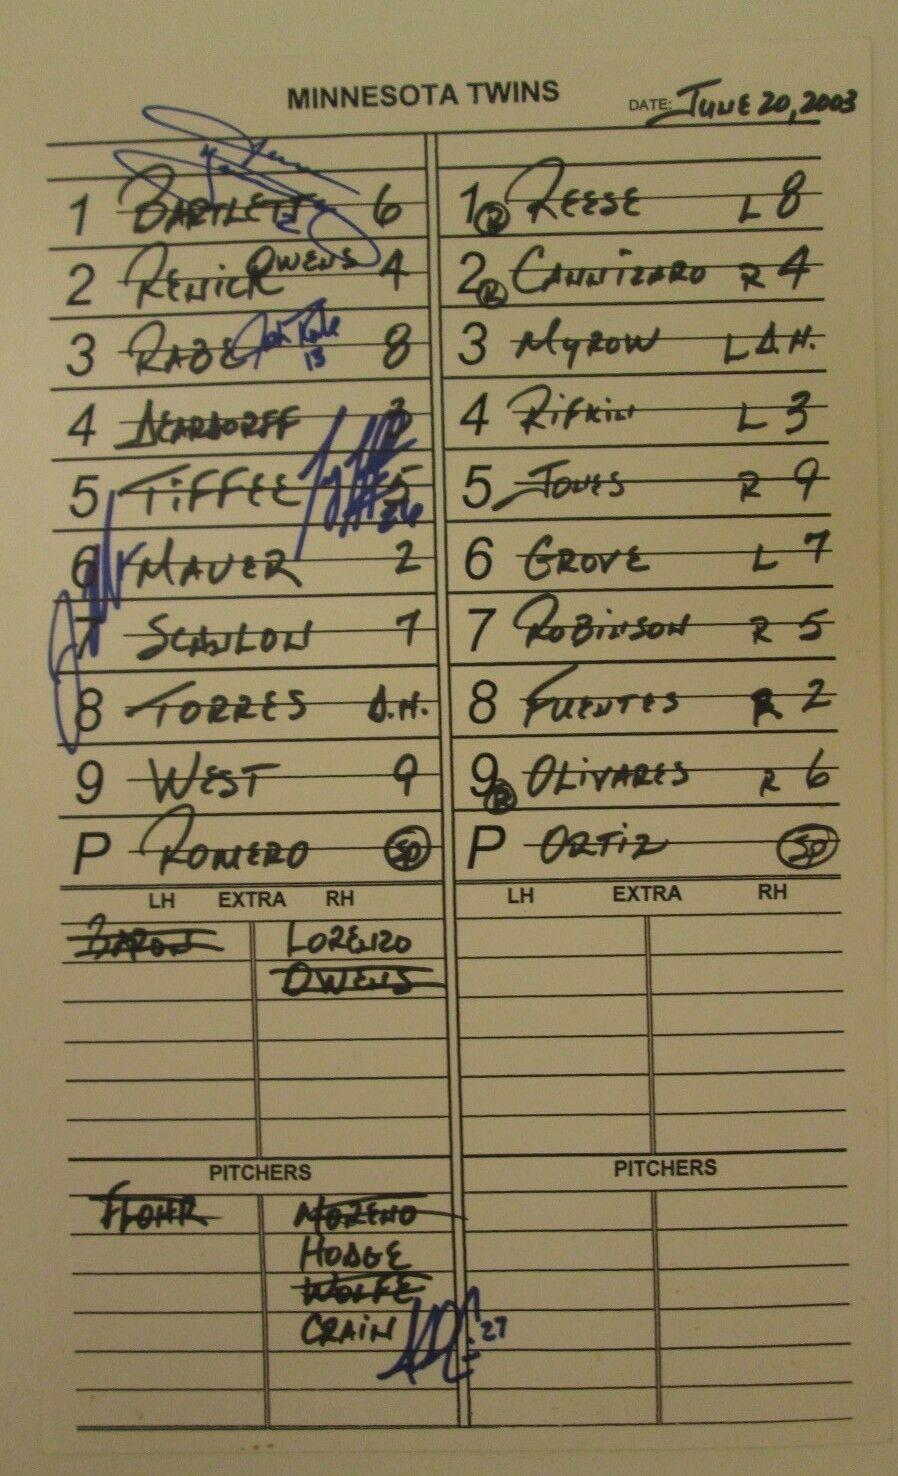 MINNESOTA TWINS
DATE: JUNE 20, 2003
1 BARTLETT 6
2 RENICK OWENS 4
3 RABE 13 8
4 DEARDORFF 3
5 TIFFEE 26 5
6 MAUER 2
7 SCANLON 7
8 TORRES D.H.
9 WEST 9
P ROMERO SP
1 R REESE L 8
2 R CANNIZARO R 4
3 MYROW L D.H.
4 RIFKIN L 3
5 JONES R 9
6 GROVE L 7
7 ROBINSON R 5
8 FUENTES R 2
9 R OLIVARES R 6
P ORTIZ SP
LH EXTRA RH
BARON LORENZO
OWENS
LH EXTRA RH
PITCHERS
FLOHR MORENO
HODGE
WOLFE
CRAIN 27
PITCHERS